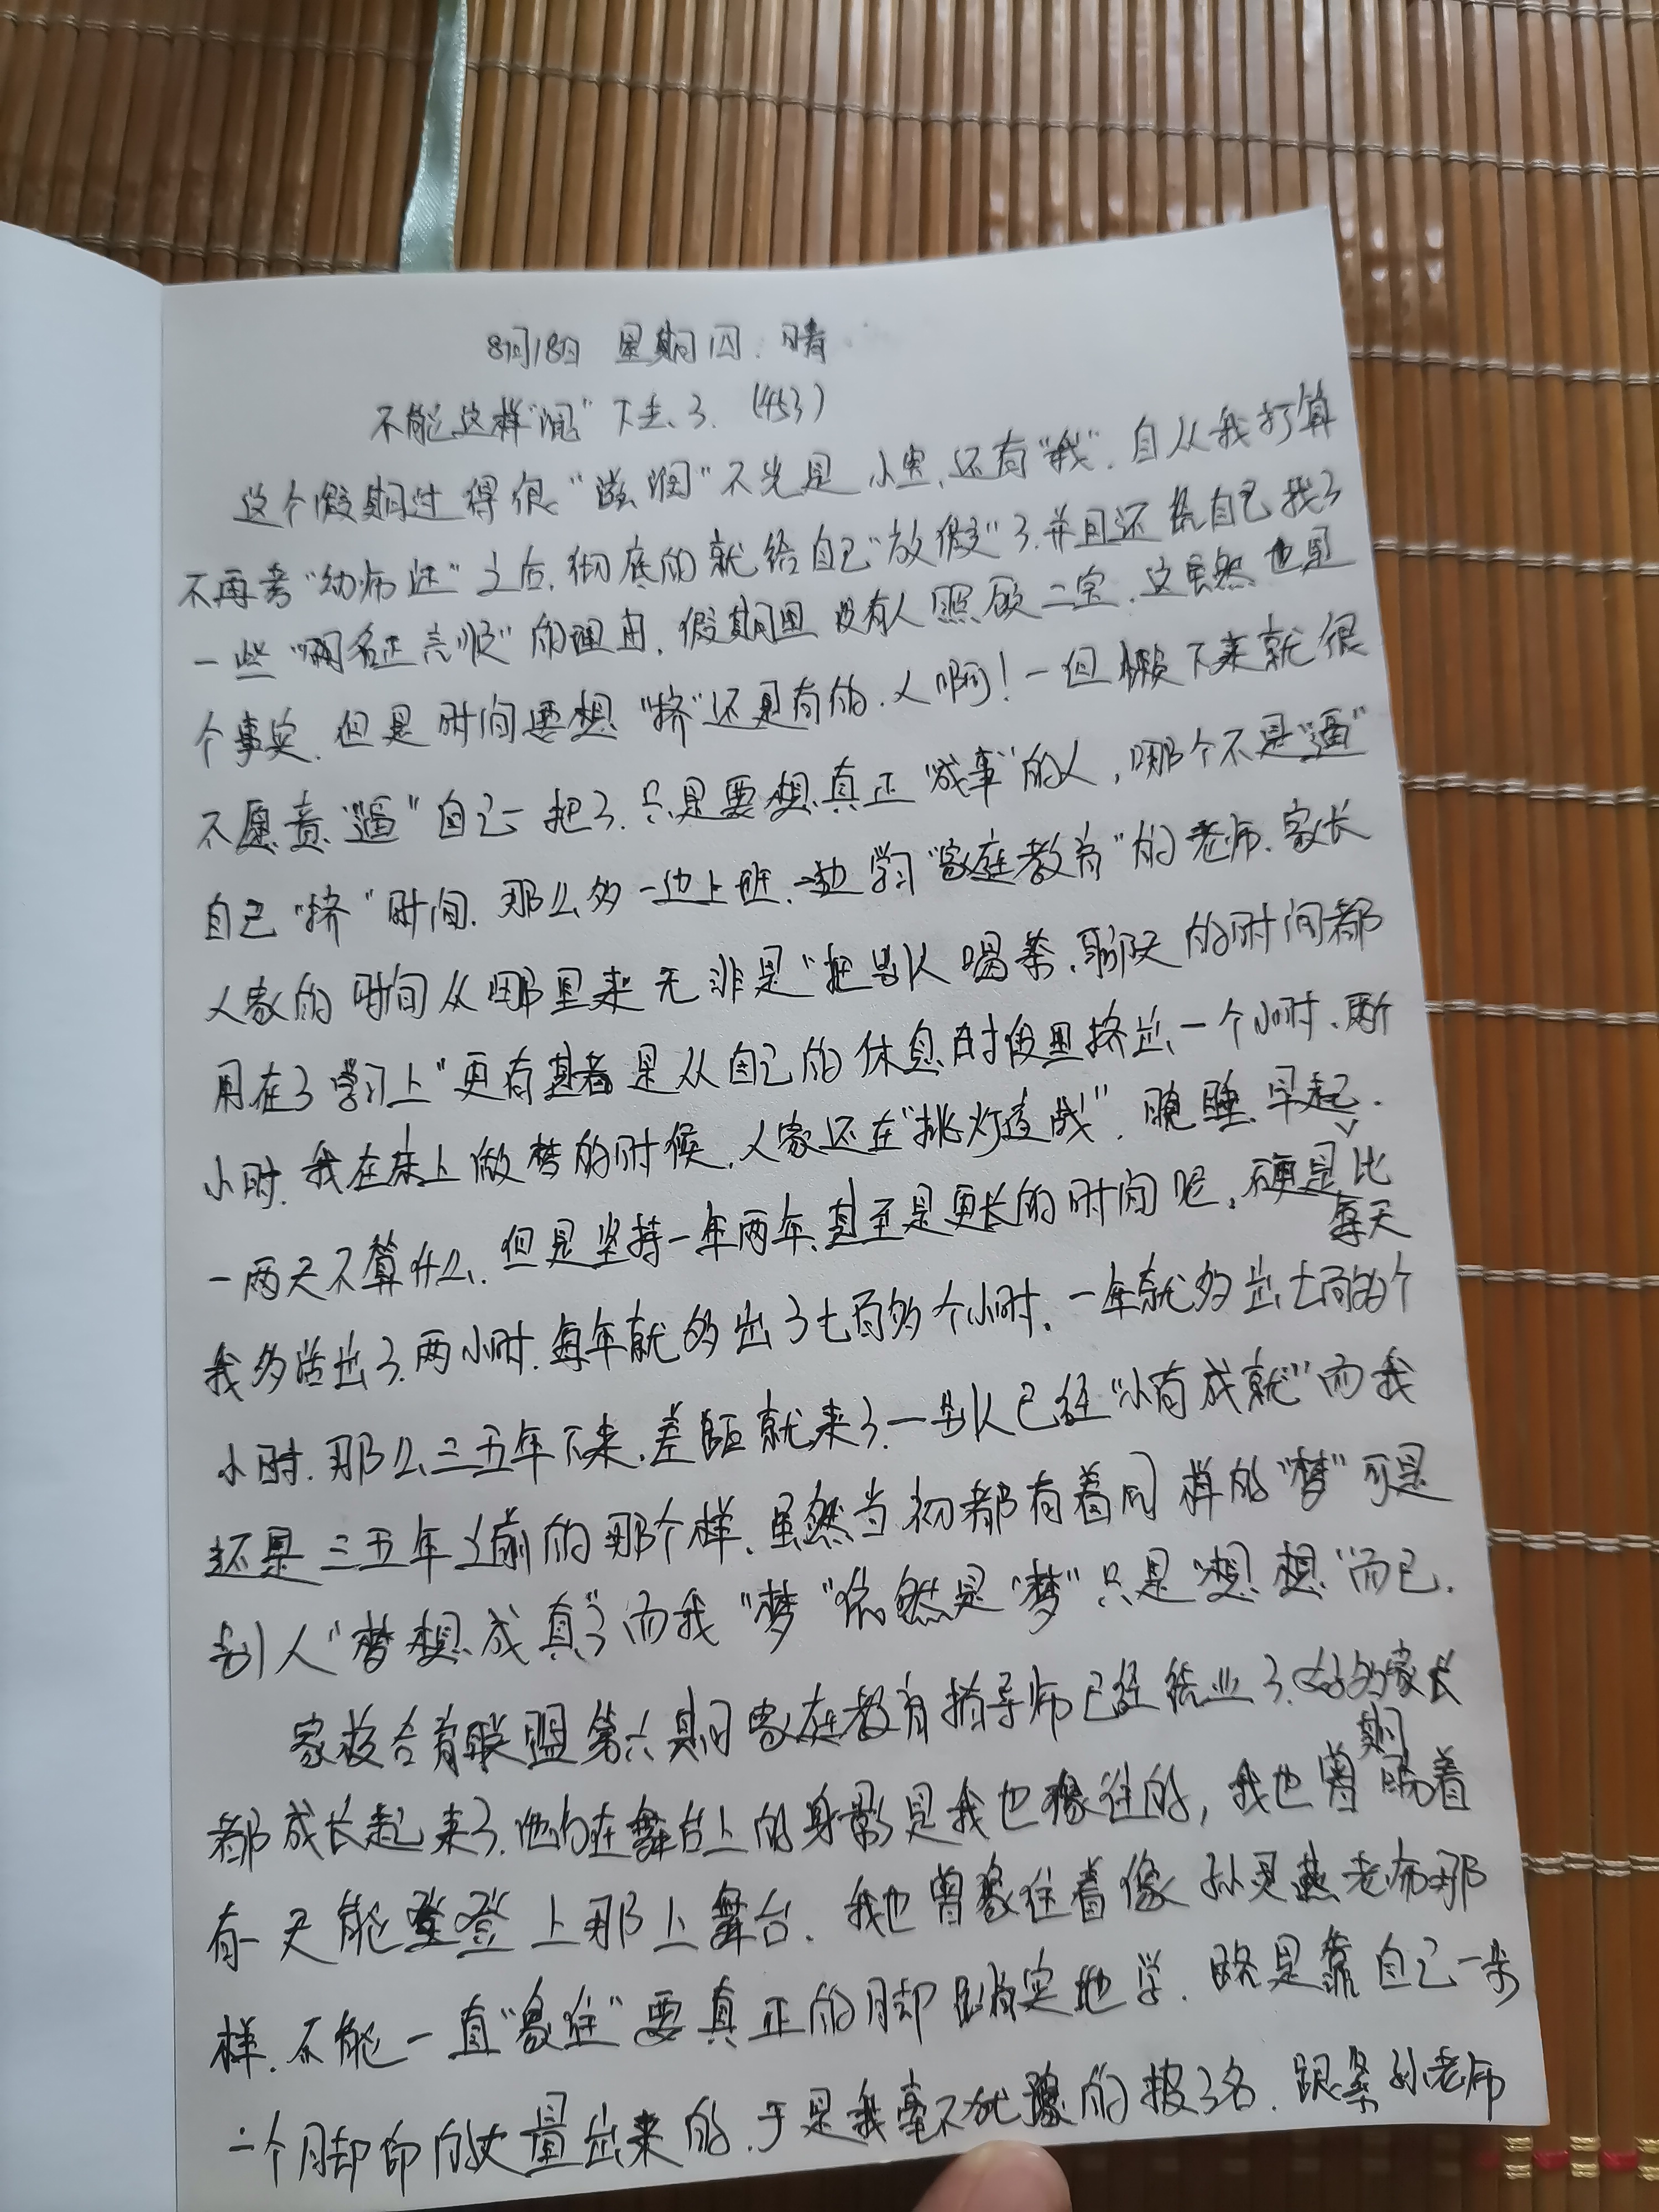 8月18日 星期四. 晴
不能这样"混"下去了. (453)
这个假期过得很"滋润"不光是小宝,还有"我".自从我打算
不再考"幼师证"之后.彻底的就给自己"放假"了.并且还给自己找了
一些"名正言顺"的理由.假期里没有人照顾二宝.这虽然也是
个事实.但是时间要想"挤"还是有的.人啊!一但懒下来就很
不愿意"逼"自己一把了.只是要想真正"成事"的人,哪个不是"逼"
自己"挤"时间.那么多一边上班.一边学习"家庭教育"的老师.家长
人家的时间从哪里来无非是"把别人喝茶.聊天的时间都
用在了学习上"更有甚者是从自己的休息时间里挤出一个小时.两个
小时.我在床上做梦的时候.人家还在"挑灯夜战".晚睡.早起.
一两天不算什么.但是坚持一年两年.甚至是更长的时间呢.硬是比
每天
我多活出了.两小时.每年就多出了七百多个小时.一年就多出七百多个
小时.那么三五年下来.差距就来了.一别人已经"小有成就"而我
还是三五年之前的那个样.虽然当初都有着同样的"梦"可是
别人"梦想成真"了而我"梦"依然是"梦"只是"想想"而已.
家校合育联盟第六期家庭教育指导师已经结业了.好多的家长
期
都成长起来了.他们在舞台上的身影是我也向往的,我也曾盼着
有一天能登上那上舞台.我也曾向往着像孙灵燕老师那
样.不能一直"向往"要真正的脚踏实地学.路是靠自己一步
一个脚印的丈量出来的.于是我毫不犹豫的报了名.跟孙老师